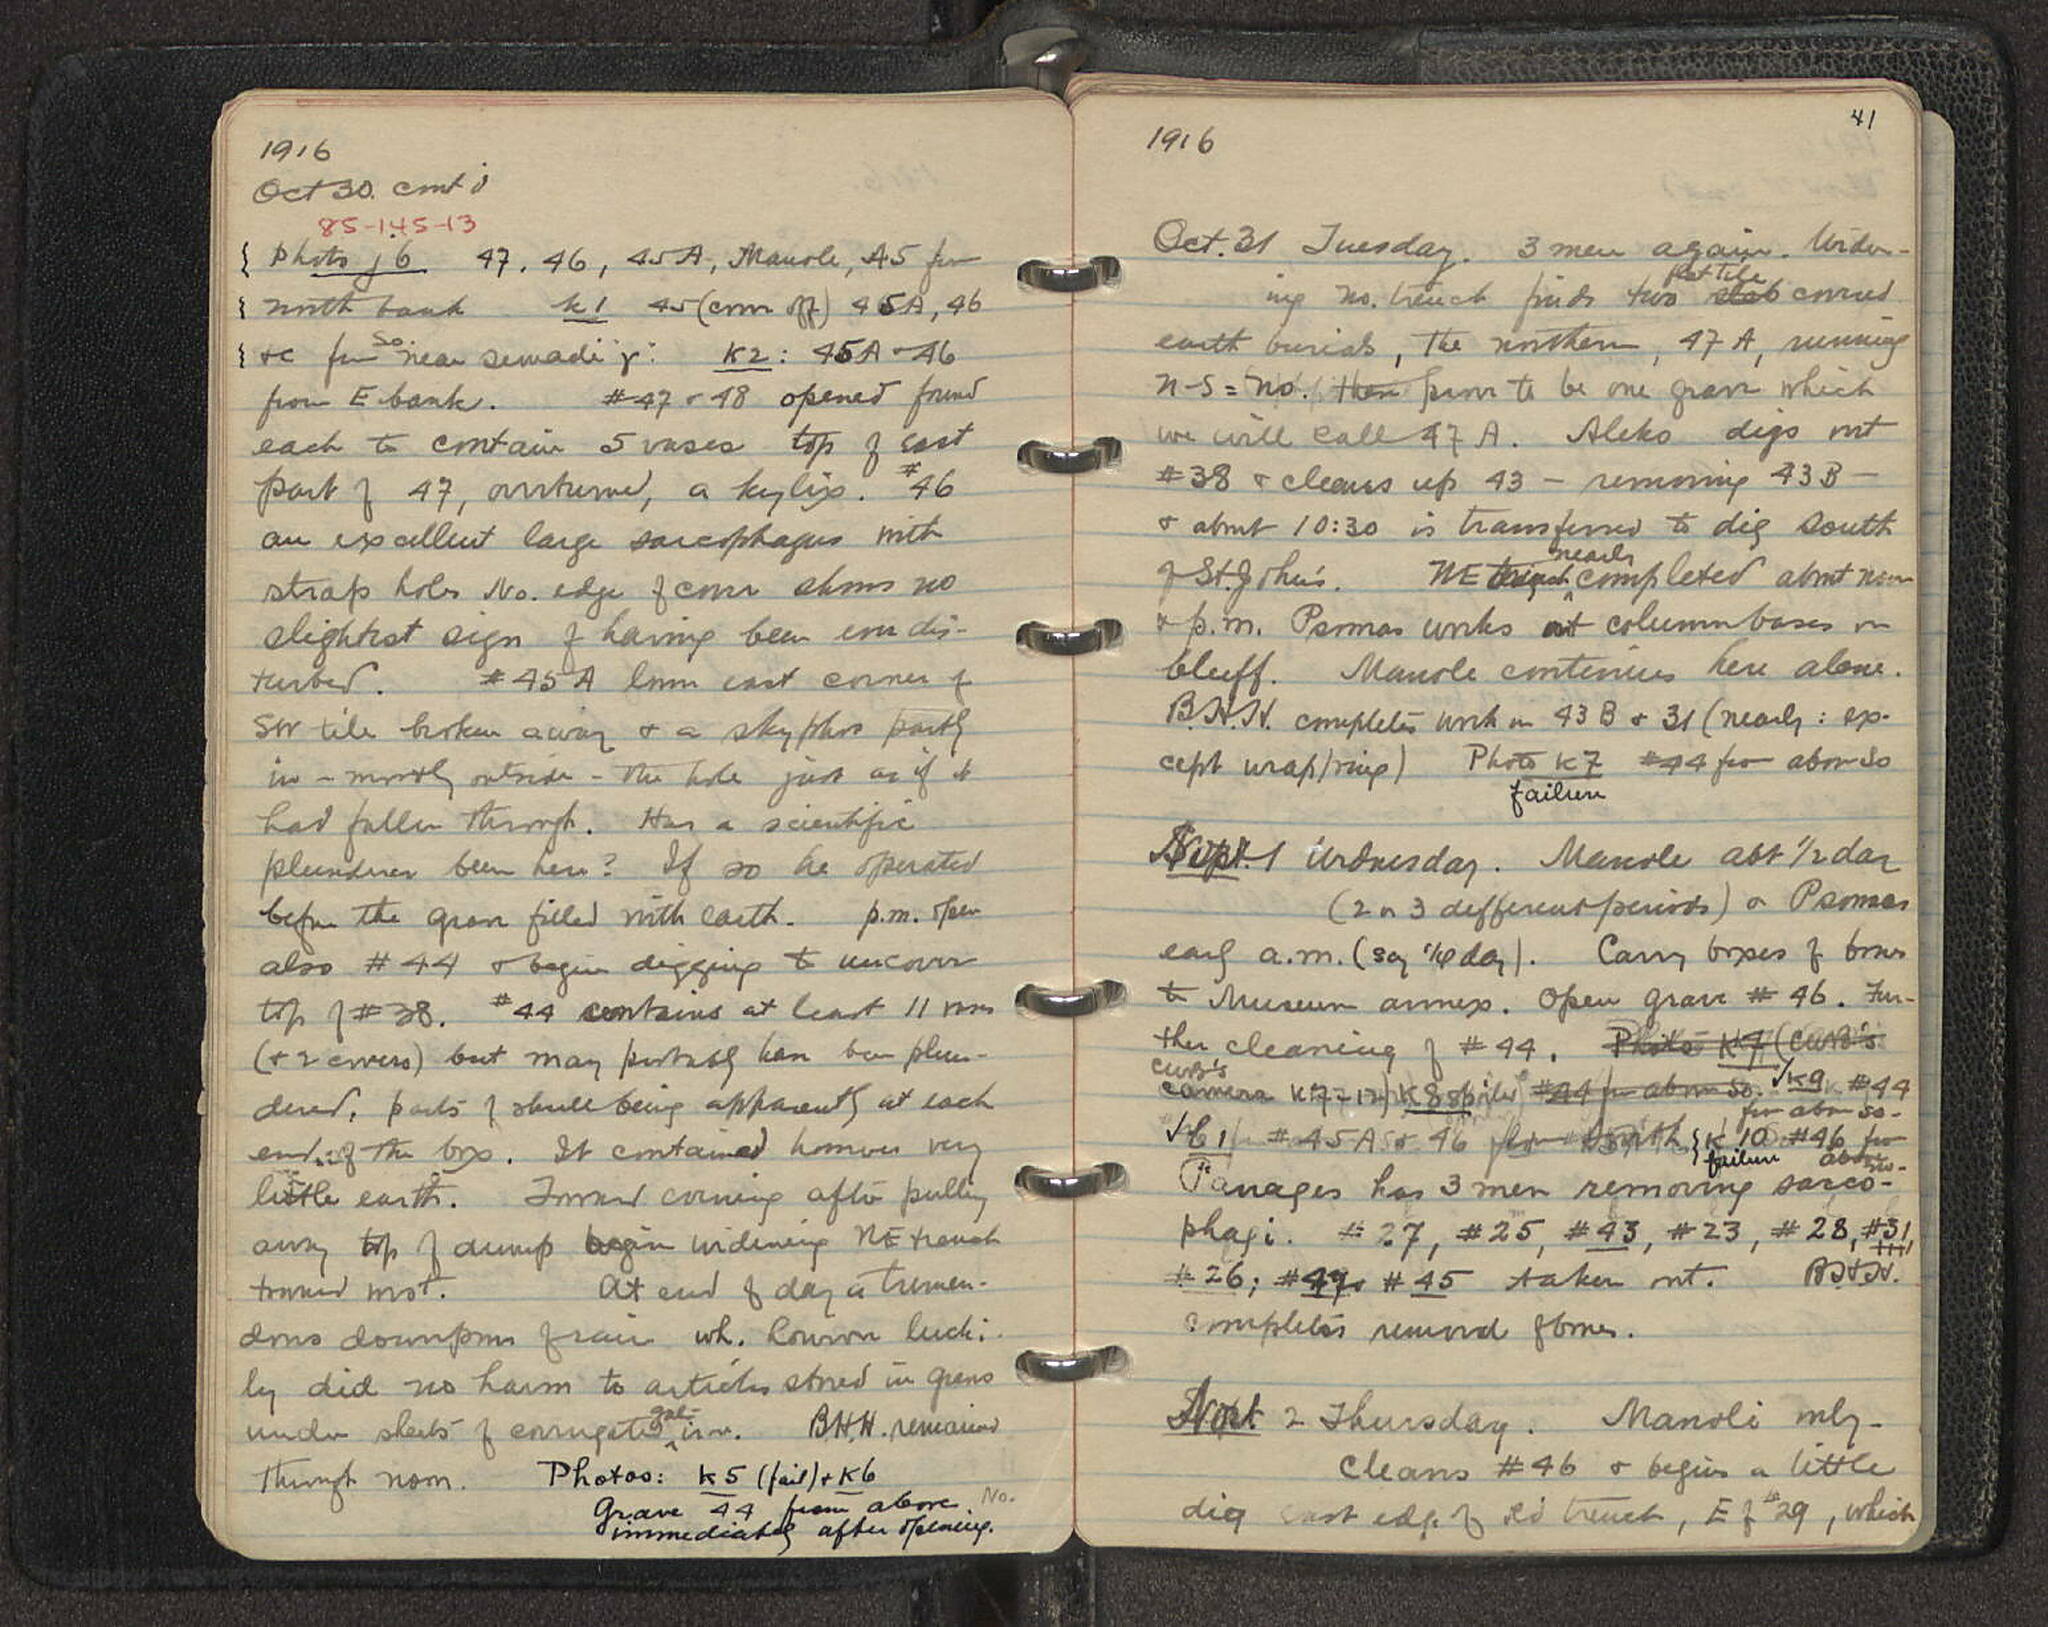 1916
Oct 30. cont'd
85-145-13
Photos j 6 47, 46, 45A, Manole, 45 from
north bank k1 45 (cover off) 45A, 46
+c from So. near
K2: 45A + 46
from E bank. #47 + 48 opened found
each to contain 5 vases top of east
part of 47, overturned, a kylix. #46
an excellent large sarcophagus with
strap holes No. edge of cover shows no
slightest sign of having been ever dis-
turbed. #45A lower east corner of
SW tile broken away + a skyphos partly
in - mostly outside - the hole just as if it
had fallen through. Has a scientific
plunderer been here? If so he operated
before the grave filled with earth. p.m. open
also #44 + begin digging to uncover
top of #38. #44 contains at least 11 vases
(+ 2 covers) but may probably have been plun-
dered, parts of skull being apparently at each
end of the box. It contained however very
little earth. Toward evening after pulling
away top of dump begin widening NE trench
toward west. At end of day a tremen-
dous downpour of rain wh. however lucki-
ly did no harm to articles stored in graves
under sheets of corrugated gal- iron. B.H.H. remained
through noon. Photos: K5 (fail) + K6
Grave 44 from above No.
immediately after opening.
41
1916
Oct. 31 Tuesday. 3 men again. Widen-
ing no. trench finds two flat tile slab covered
earth burials, the northern, 47 A, running
N-S = No. then prove to be one grave which
we will call 47 A. Aleko digs out
#38 + cleans up 43 - removing 43 B -
+ about 10:30 is transferred to dig south
of St. John's. NE trench nearly completed about noon
+ p.m. Psomas works at column bases on
bluff. Manole continues here alone.
B.H.H. completes work on 43 B + 31 (nearly: ex-
cept wrapping) Photo K7 #44 from above So
failure
Nov. 1 Wednesday. Manole abt 1/2 day
(2 or 3 different periods) + Psomas
early a.m. (say 1/4 day). Carry boxes of bones
to Museum annex. Open grave #46. Fur-
ther cleaning of #44. Photo K7 (CWB's
CWB's
camera K7-12) K8 spoiled #44 from above So. √K9 #44
from above So.
√C1 #45A + 46 from south K10 #46 from
failure above No.
Panages has 3 men removing sarco-
phagi. #27, #25, #43, #23, #28, #31,
#26; #47, #45 taken out. B.H.H.
completes removal of bones.
Nov. 2 Thursday. Manoli only.
Cleans #46 + begins a little
dig east edge of trench, E of 29, which